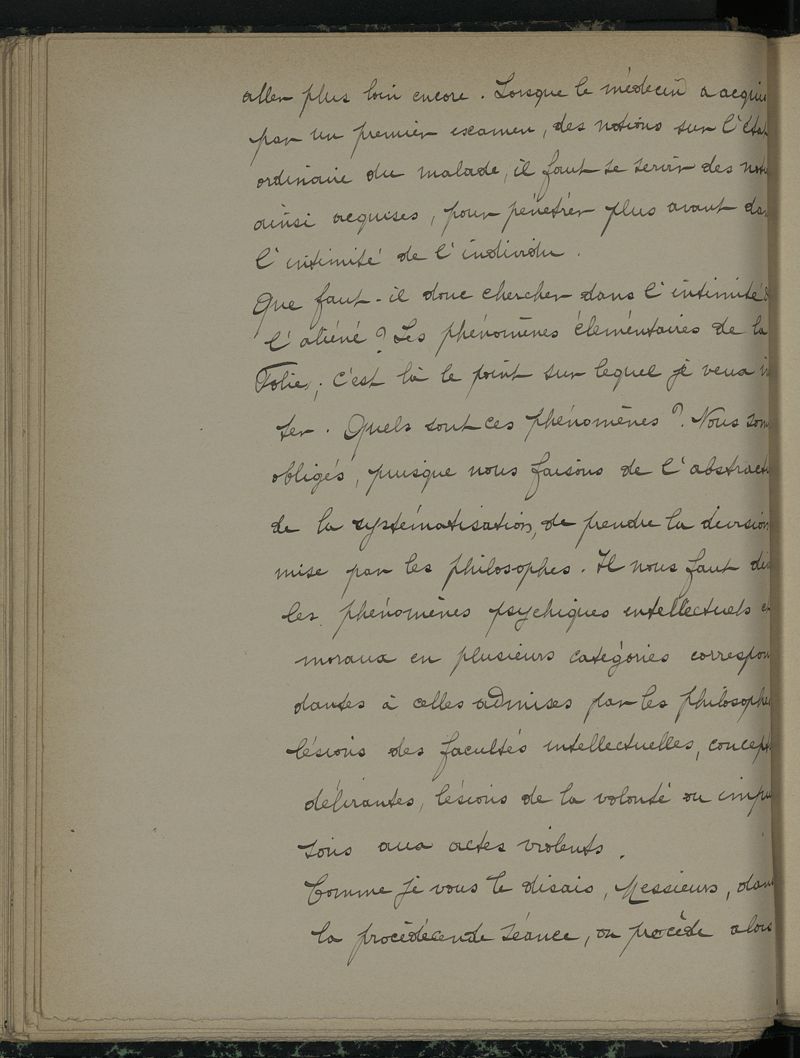 aller plus loin encore. Lorsque le médecin a acquis
par un premier examen, des notions sur l'état
ordinaire du malade, il faut se servir des not
ainsi acquises, pour pénétrer plus avant da
l'intimité de l'individu.
Que faut-il donc chercher dans l'intimité d
l'aliéné? Les phénomènes élémentaires de la
Folie; c'est là le point sur lequel je veux in
ter. Quels sont ces phénomènes? Nous som
obligés, puisque nous faisons de l'abstract
de la systématisation, de prendre la division
mise par les philosophes. Il nous faut div
les phénomènes psychiques intellectuels et
moraux en plusieurs catégories correspon
dantes à celles admises par les philosophes
lésions des facultés intellectuelles, concept
délirantes, lésions de la volonté ou impu
sions aux actes violents.
Comme je vous le disais, Messieurs, dans
la procédécende séance, on procède alors